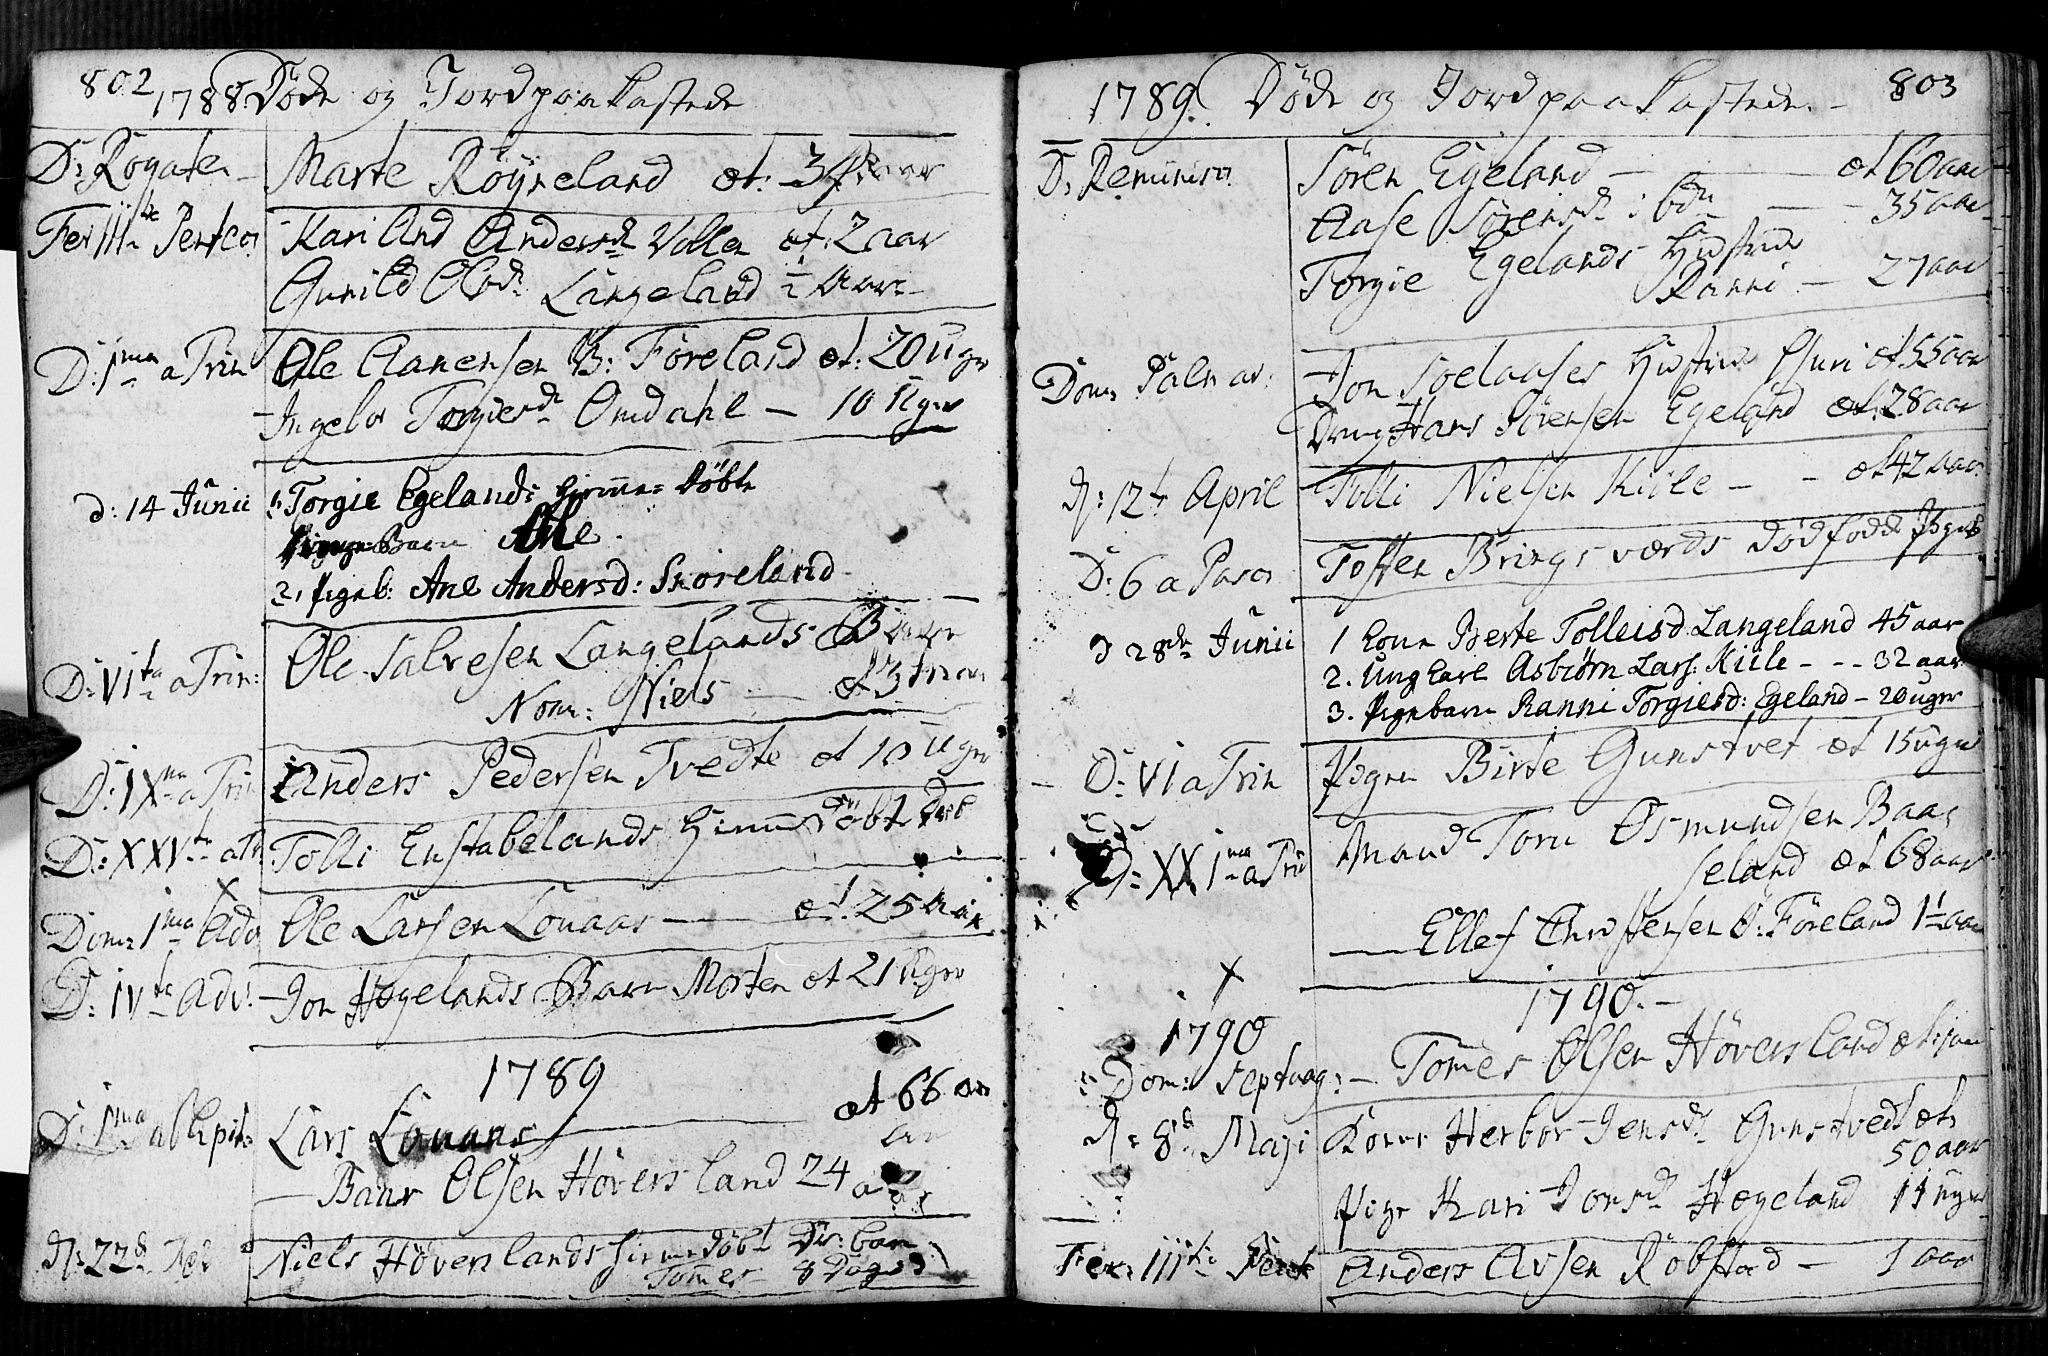 802
1788. Døde og Jordpaakastede
D: Rogate. Marte Røyneland æt: 34 aar
Fer: IIItie Pentec: Kari And Andersd: Vollen æt: 2 aar
Gunild Olsd: Langeland ½ Aar
D: 1ma a Trin Ole Aanensen B: Føreland æt: 20 Uger
Ingebor Torgiesd: Omdahl — 10 Uger
d: 14 Junii 1. Torgie Egelands hjemme Døbte
Barn
2, Pigeb: Ane Andersd: Skoreland
D: VIta a Trin: Ole Salvesen Langelands Barn
Nom: Niels — æt 3
D: IXna a Trin Anders Pedersen Tvedte æt 10 Uger
D: XXVta a Tr Tolli Enstabelands Hiemme Døbt
Dom: 1ma Adv Ole Larsen Louaas — æt: 25 Aar
D: IVta Adv: Jon Hægelands Barn Morten æt 21 Uger
1789
D: 1ma ab Epiph: Lars Louaas — æt 66 aar
— Baar Olsen Høversland 24 aar
D: 22d Niels Høverslands hiemmedøbt Dr: barn
Tomes 8 Dage
1789. Døde og Jordpaakastede. — 803
D: Reminisc: Søren Egeland — æt 60 aar
Aase Sørensd: ibd: — 35 aar
Torgie Egelands Hustrue
Ranni — 27 aar
Dom: Palmar: Jon Soelaases Hustrue Guri æt 55 aar
Dreng Hans Sørensen Egeland æt. 28 aar
d: 12t April Tolli Nielsen Kiile — æt 42 aar
D: 6 a Pasc: Tosten Bringsværds dødfødde Pigeb
d 28de Junii 1 Kone Berte Tolleisd. Langeland 45 aar
2. Ung Karl Asbiørn Lars. Kiile - - - 32 aar
3. Pigebarn Ranni Torgiesd: Egeland — 20 uger
D: VI a Trin Pigen Birte Gunstvet æt 15 uger
D: XX1ma a Trin Mand Toru Osmundsen Baas
seland æt 68 aar
— Ellef Christensen O: Føreland 1½ aar
1790. —
1790
Dom: Septuag: — Tomes Olsen Høversland æt: 
d: 8d Maji Kone Herbor Jensd: Gunstvedt æt:
50 aar
Pige Kari Jonsd: Hægeland 11 uger
Fer: IIItia Pent Anders Avsen Robstad — 1 aar